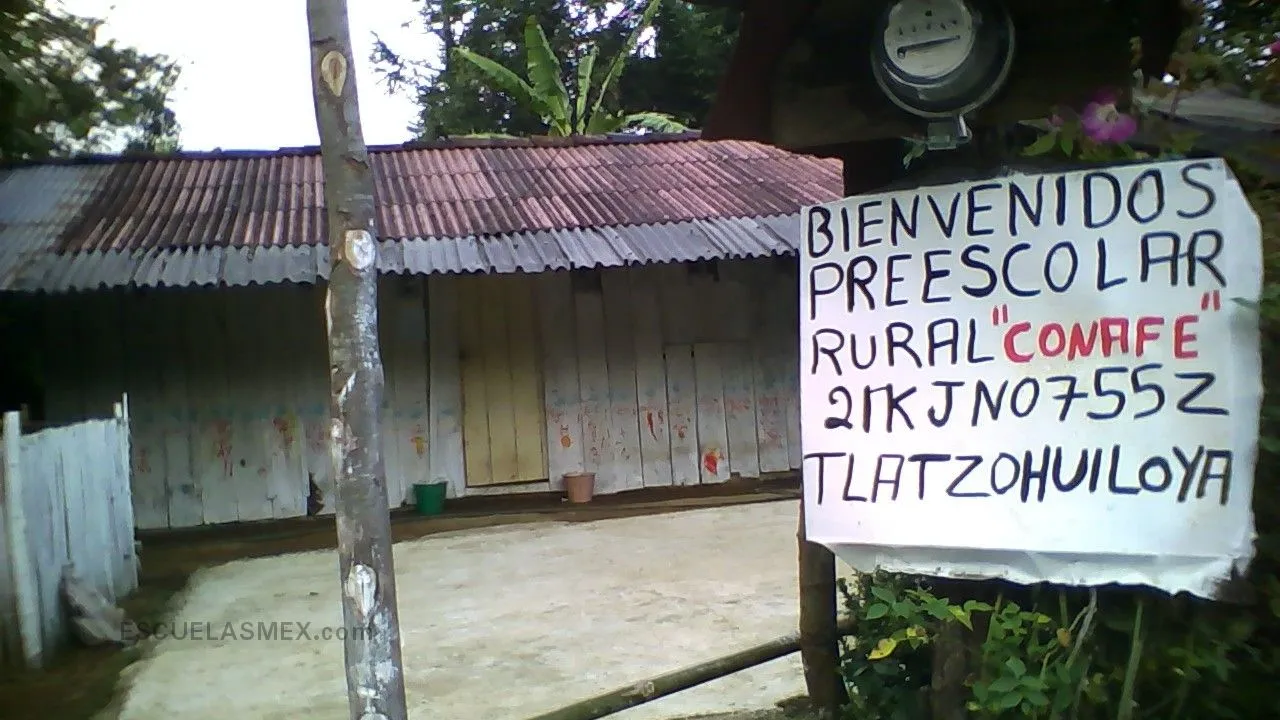 BIENVENIDOS
PREESCOLAR
RURAL "CONAFE"
21KJN0755Z
TLATZOHUILOYA
ESCUELASMEX.com